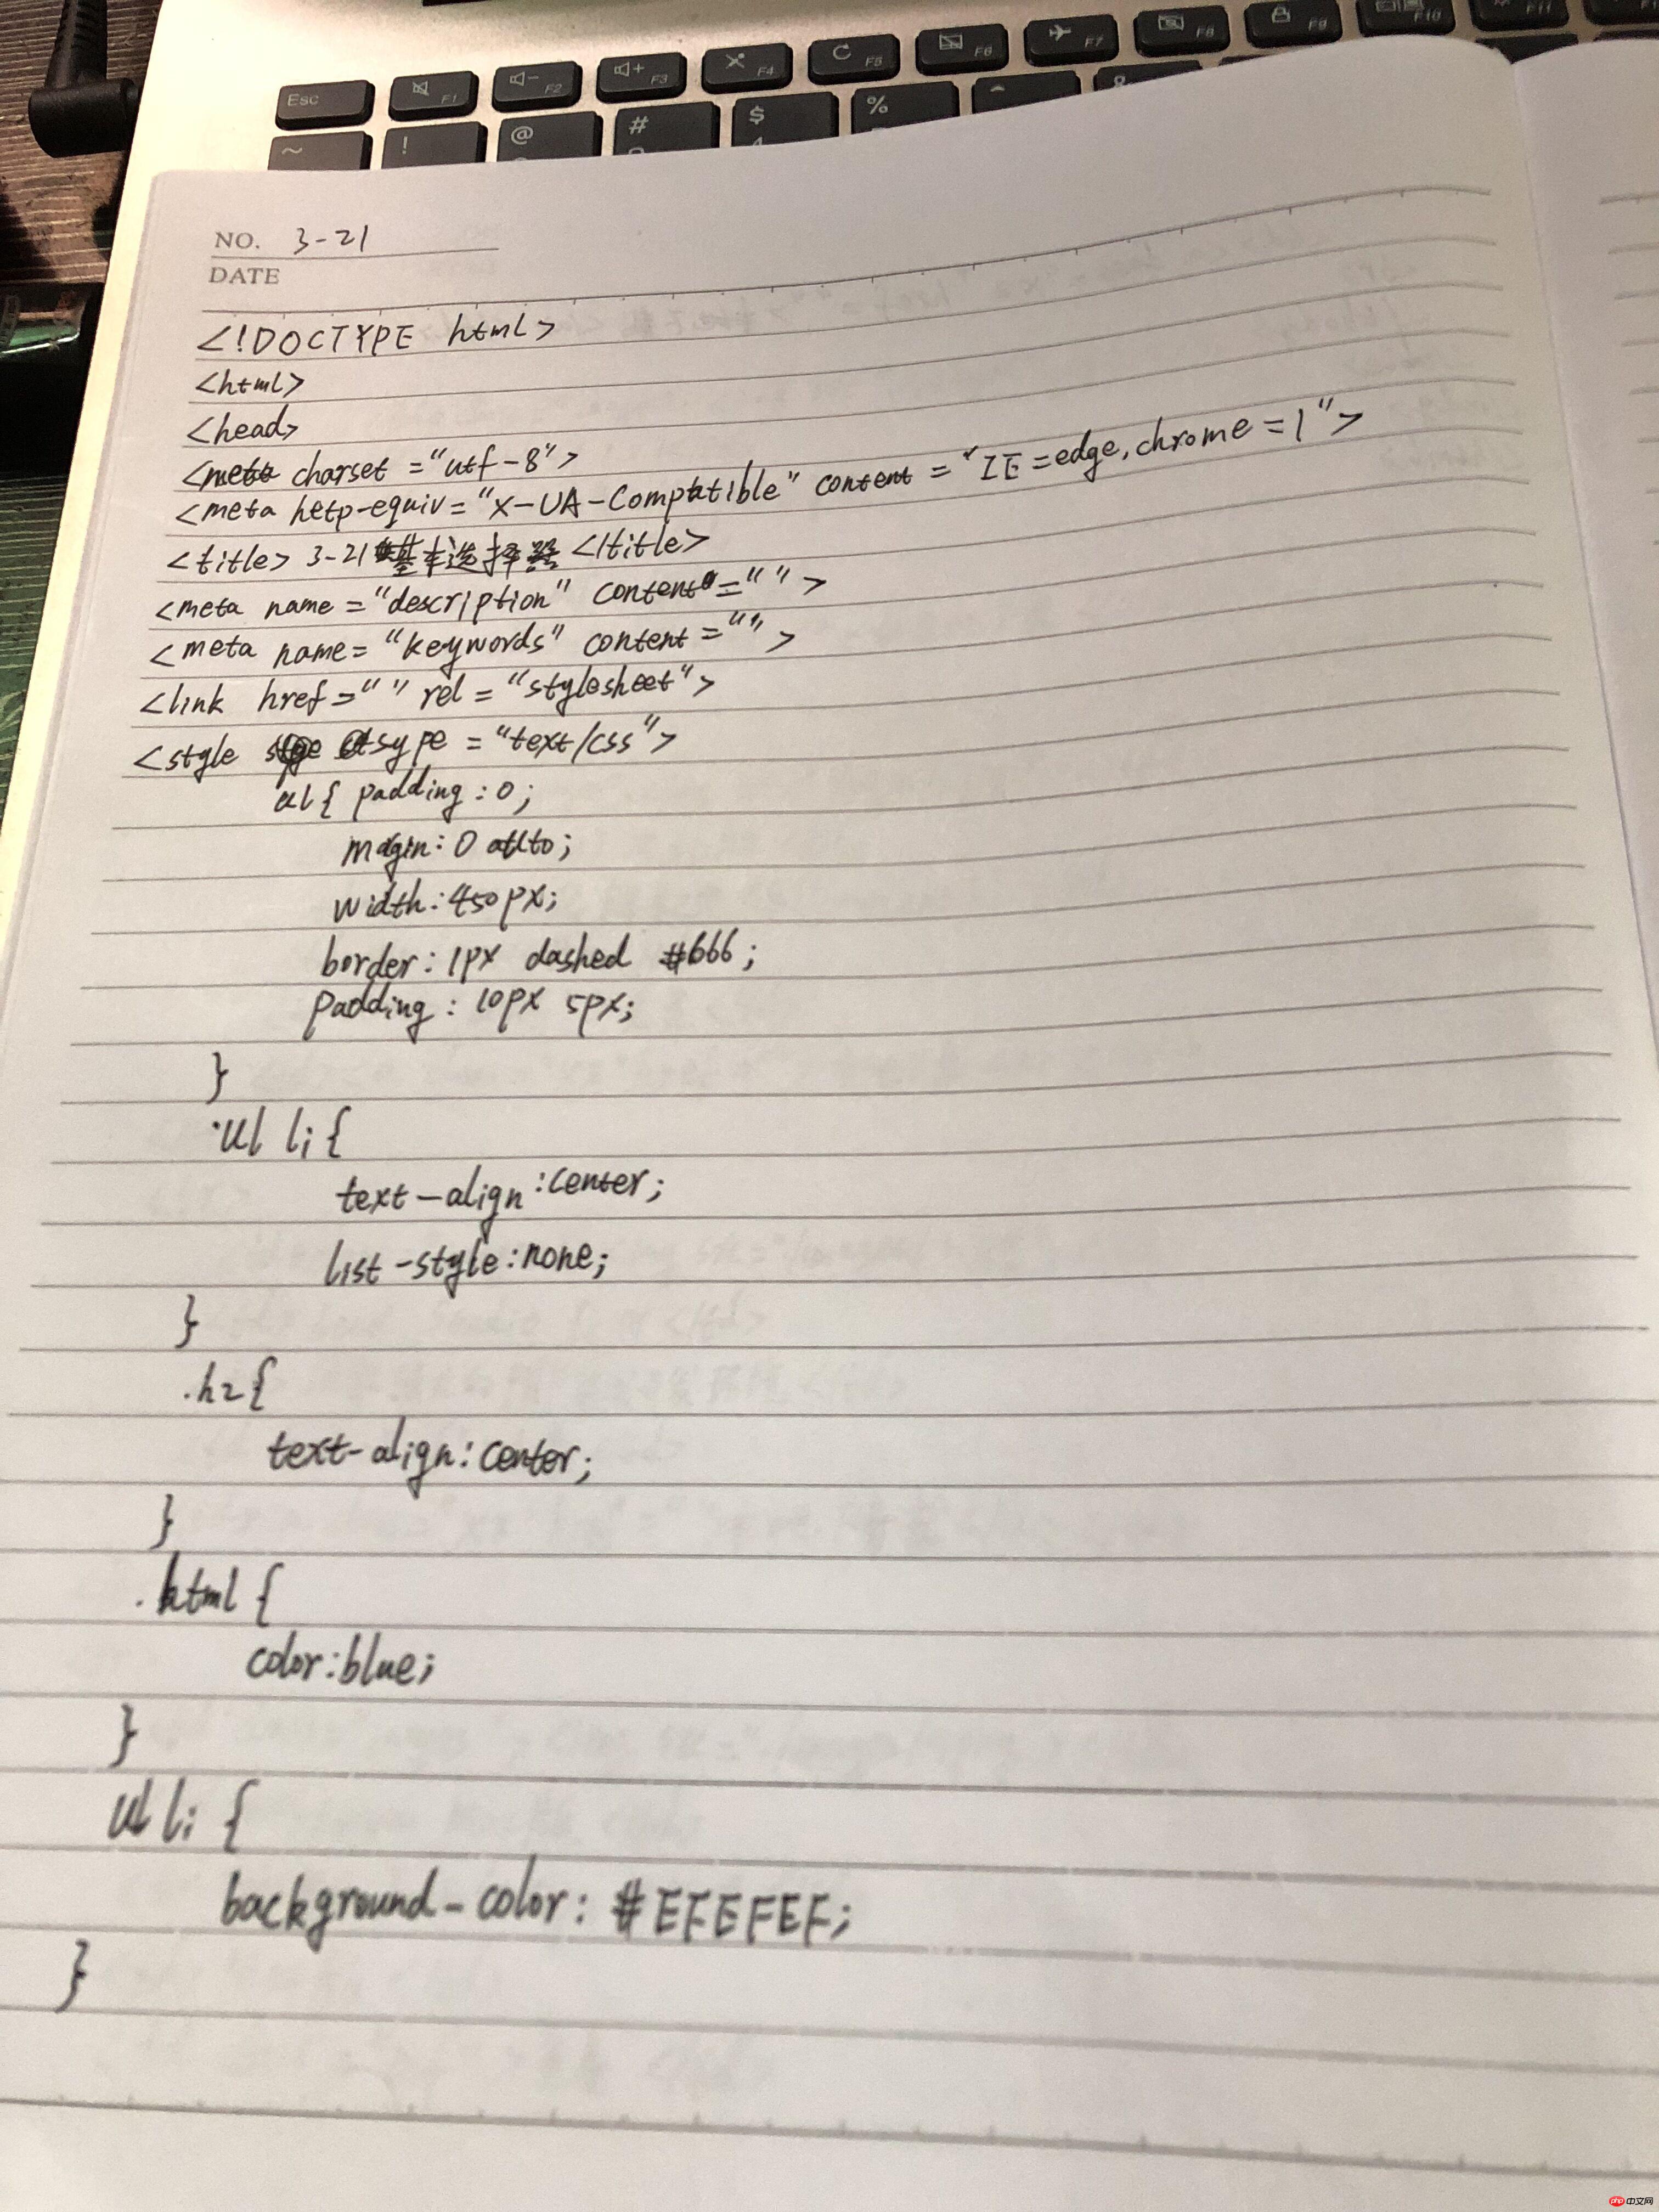 Esc
F1
F2
F3
F4
F5
F6
F7
F8
F9
F10
F11
~
!
@
#
$
4
%
NO. 3-21
DATE
<!DOCTYPE html>
<html>
<head>
<meta charset="utf-8">
<meta http-equiv="X-UA-Compatible" content="IE=edge,chrome=1">
<title>3-21基本选择器</title>
<meta name="description" content="">
<meta name="keywords" content="">
<link href="" rel="stylesheet">
<style type="text/css">
ul{ padding:0;
margin:0 auto;
width:450px;
border:1px dashed #666;
padding:10px 5px;
}
.ul li{
text-align:center;
list-style:none;
}
.h2{
text-align:center;
}
.html{
color:blue;
}
ul li {
background-color: #EFEFEF;
}
php 中文网